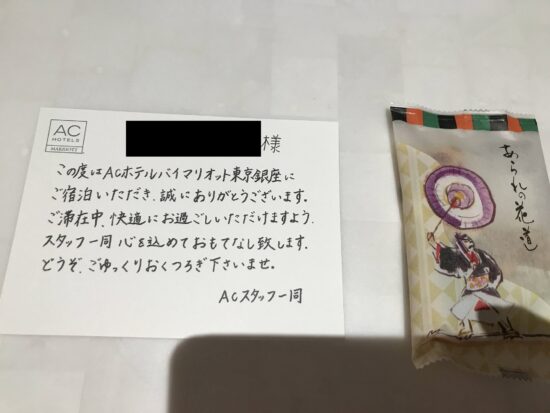 AC
HOTELS
MARRIOTT
様
この度はACホテルバイマリオット東京銀座に
ご宿泊いただき、誠にありがとうございます。
ご滞在中、快適にお過ごしいただけますよう、
スタッフ一同心を込めておもてなし致します。
どうぞ、ごゆっくりおくつろぎ下さいませ。
ACスタッフ一同
あられの花道